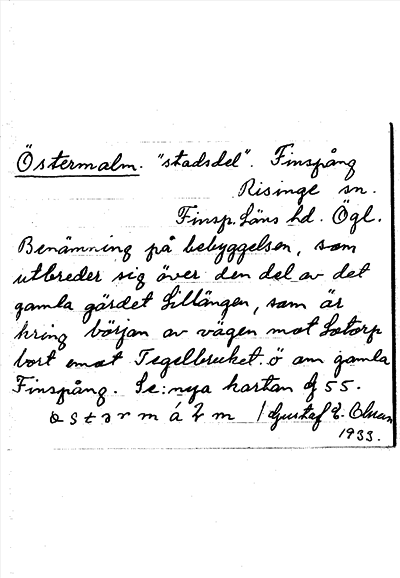 Östermalm. "stadsdel". Finspång
Risinge sn.
Finsp. Läns hd. Ögl.
Benämning på bebyggelsen, som
utbreder sig över den del av det
gamla gärdet Lillängen, som är
kring början av vägen mot Lotorp
bort emot Tegelbruket. ö om gamla
Finspång. Se: nya kartan
55.
/Gustaf E. Olsson
1933.